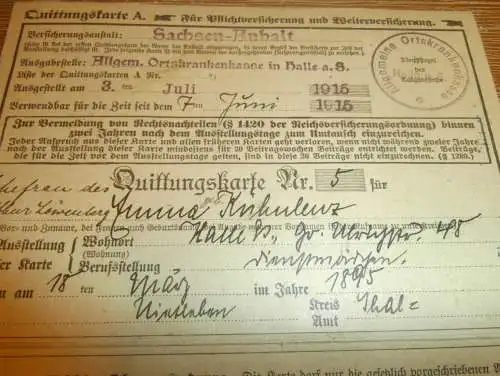 Quittungskarte A. Für Pflichtversicherung und Weiterversicherung.
Versicherungsanstalt: Sachsen-Anhalt
Ausgabestelle: Allgem. Ortskrankenkasse in Halle a. S.
Liste der Quittungskarten A Nr.
Ausgestellt am 3. ten Juli 1915
Verwendbar für die Zeit seit dem 7 ten Juni 1915
Allgemeine Ortskrankenkasse
Zur Vermeidung von Rechtsnachteilen (§ 1420 der Reichsversicherungsordnung) binnen
zwei Jahren nach dem Ausstellungstage zum Umtausch einzureichen.
Jeder Anspruch aus dieser Karte und allen früheren Karten geht verloren, wenn nicht während zweier Jahre
nach dem Ausstellungstage dieser Karte mindestens für 20 Beitragswochen Beiträge entrichtet werden. Beiträge,
die für die Zeit vor dem Ausstellungstage verwendet werden, sind in diese 20 Beiträge nicht einzurechnen (§ 1280.)
Ehefrau des
Quittungskarte Nr. 5 für
Löwenberg Emma Kühnlenz
Ausstellung Wohnort Halle S., Gr. Ulrichstr. 48
(Wohnung)
der Karte Berufsstellung Dienstmädchen.
am 18 ten März im Jahre 1895
Nietleben Kreis Saal=
Amt
Die Karte darf nur die gesetzlich vorgeschriebenen